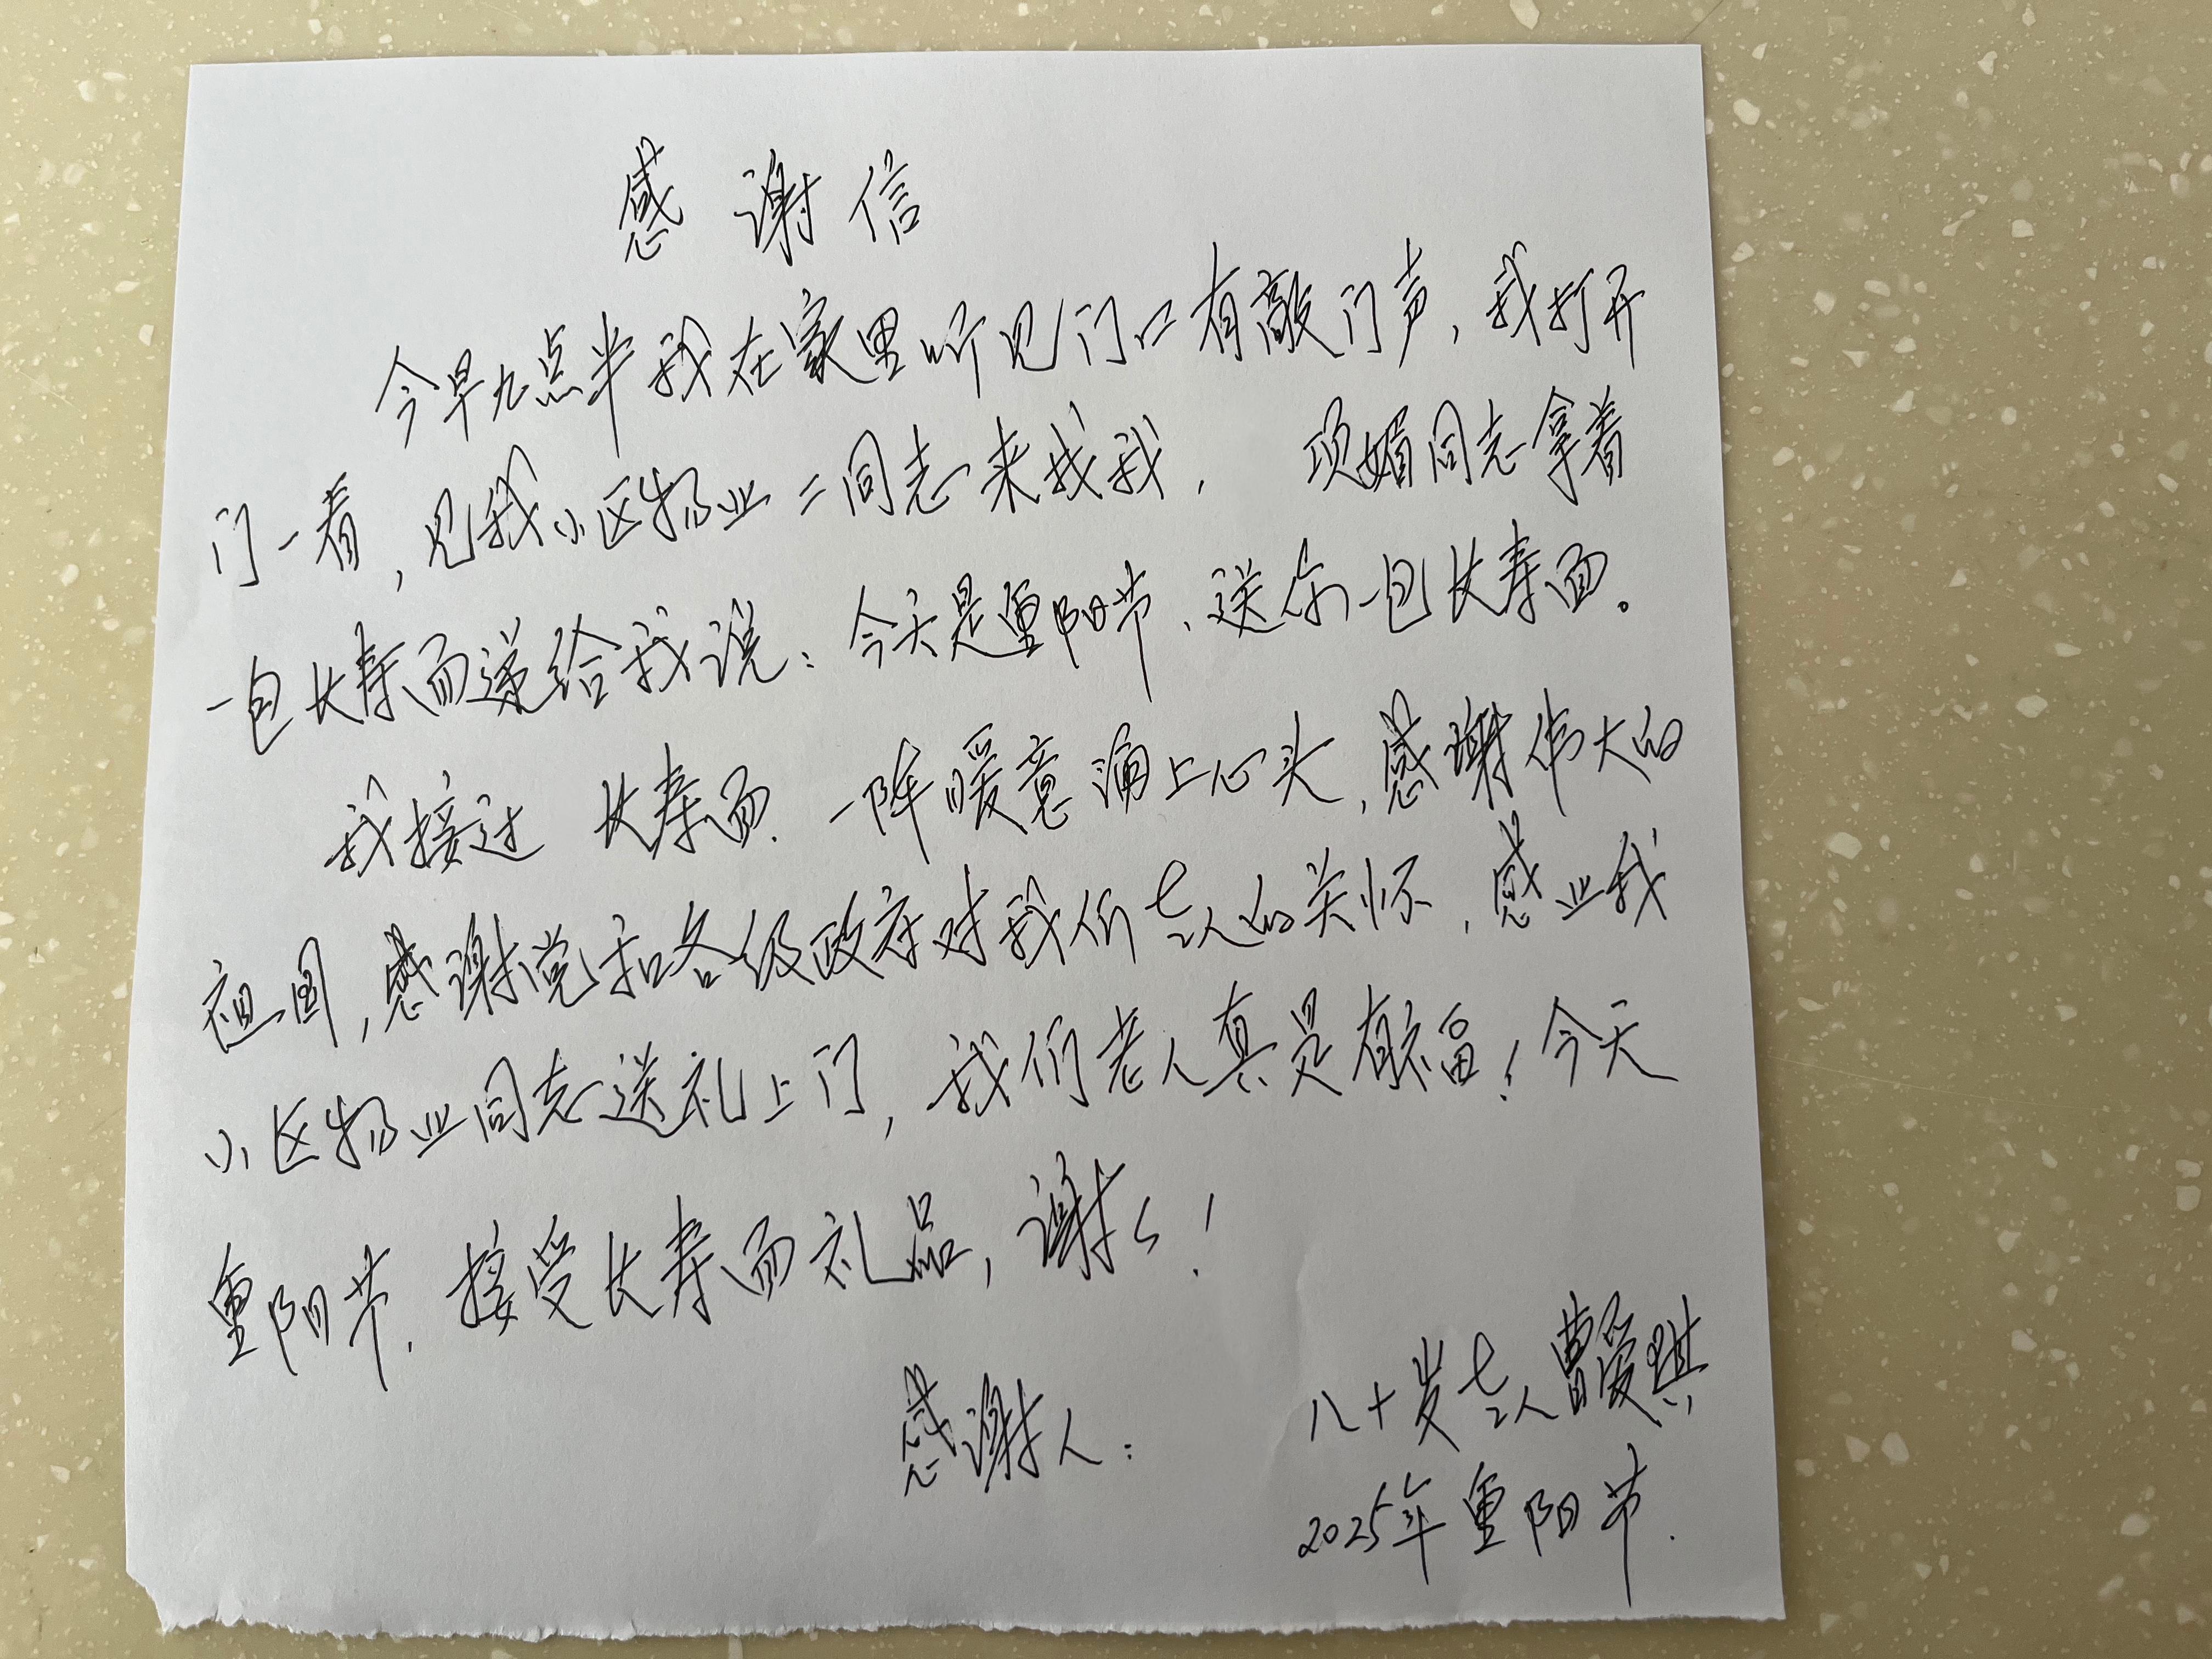 感谢信
今早九点半我在家里听见门口有敲门声，我打开
门一看，见我小区物业二同志来找我， 项媚同志拿着
一包长寿面递给我说：今天是重阳节、送你一包长寿面。
我接过 长寿面、一阵暖意涌上心头，感谢伟大的
祖国，感谢党和各级政府对我们老人的关怀，感业我
小区物业同志送礼上门，我们老人真是有福！今天
重阳节、接受长寿面礼品，谢谢！
感谢人： 八十岁老人曹爱琪
2025年重阳节.